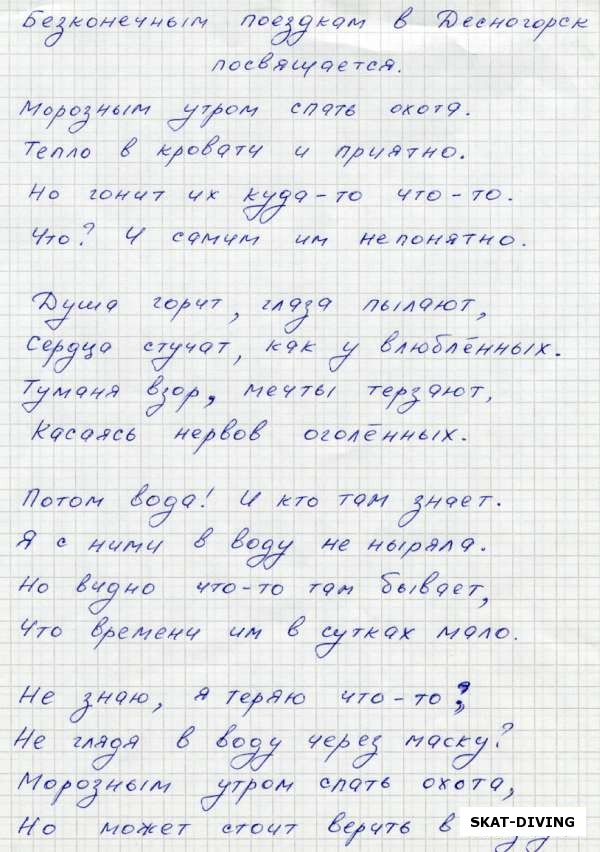 Безконечным поездкам в Десногорск
посвящается.
Морозным утром спать охота.
Тепло в кровати и приятно.
Но гонит их куда-то что-то.
Что? И самим им непонятно.
Душа горит, глаза пылают,
Сердца стучат, как у влюблённых.
Туманя взор, мечты терзают,
Касаясь нервов оголённых.
Потом вода! И кто там знает.
Я с ними в воду не ныряла.
Но видно что-то там бывает,
Что времени им в сутках мало.
Не знаю, я теряю что-то?
Не глядя в воду через маску?
Морозным утром спать охота,
Но может стоит верить в
SKAT-DIVING